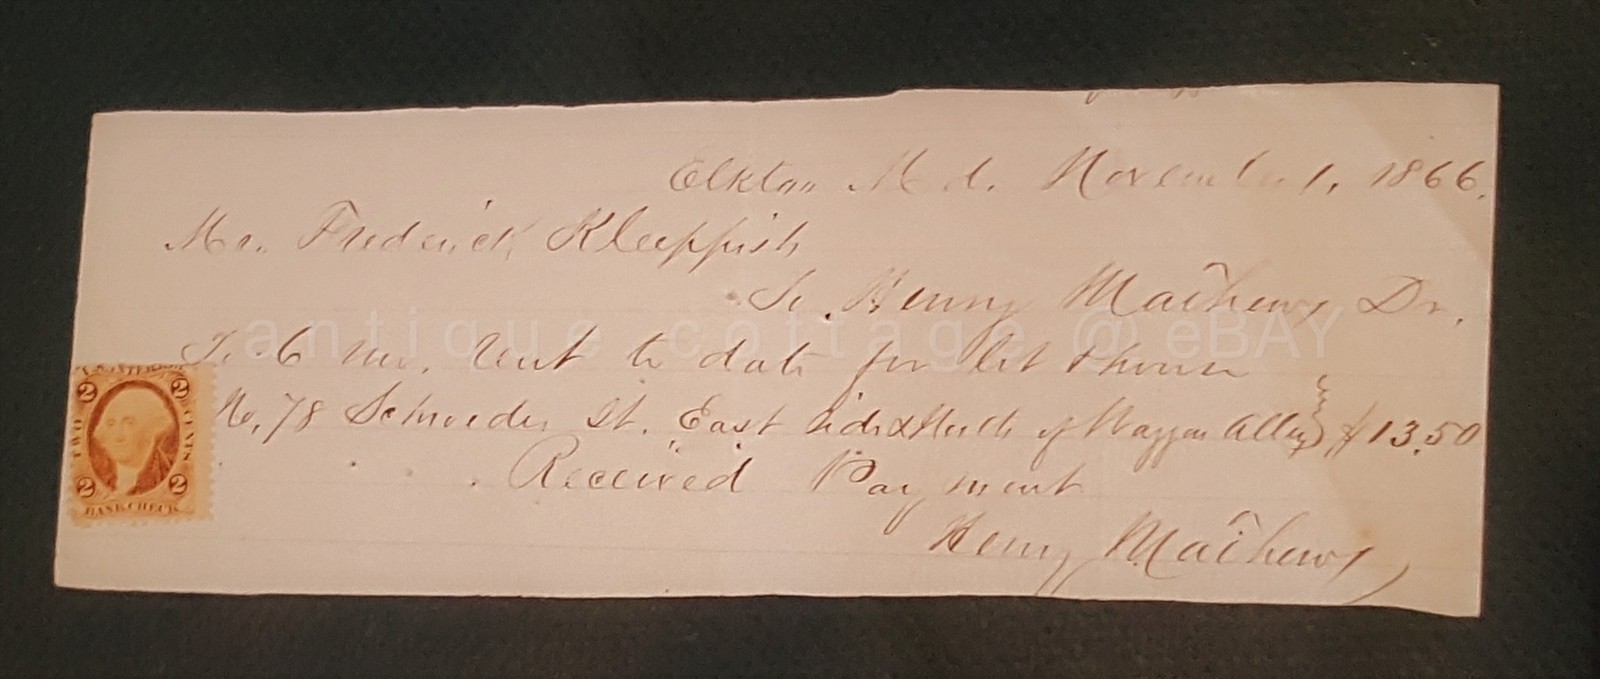 Elkton Md. November 1, 1866.
Mr. Frederick Kleppish
To Henry Mathews Dr.
To 6 mo. Rent to date for lot & house
No. 78 Schroeder St. East side & North of Waggon Alley } $13.50
Received Payment
Henry Mathews
U.S. INTER. REV.
2 2
TWO CENTS
2 2
BANK CHECK
antique cottage @ eBAY